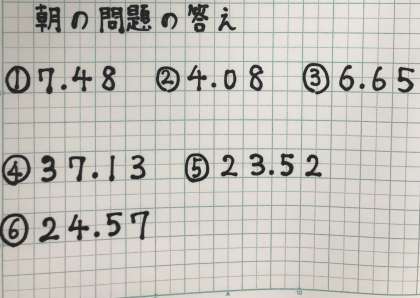 朝の問題の答え
①7.48 ②4.08 ③6.65
④37.13 ⑤23.52
⑥24.57